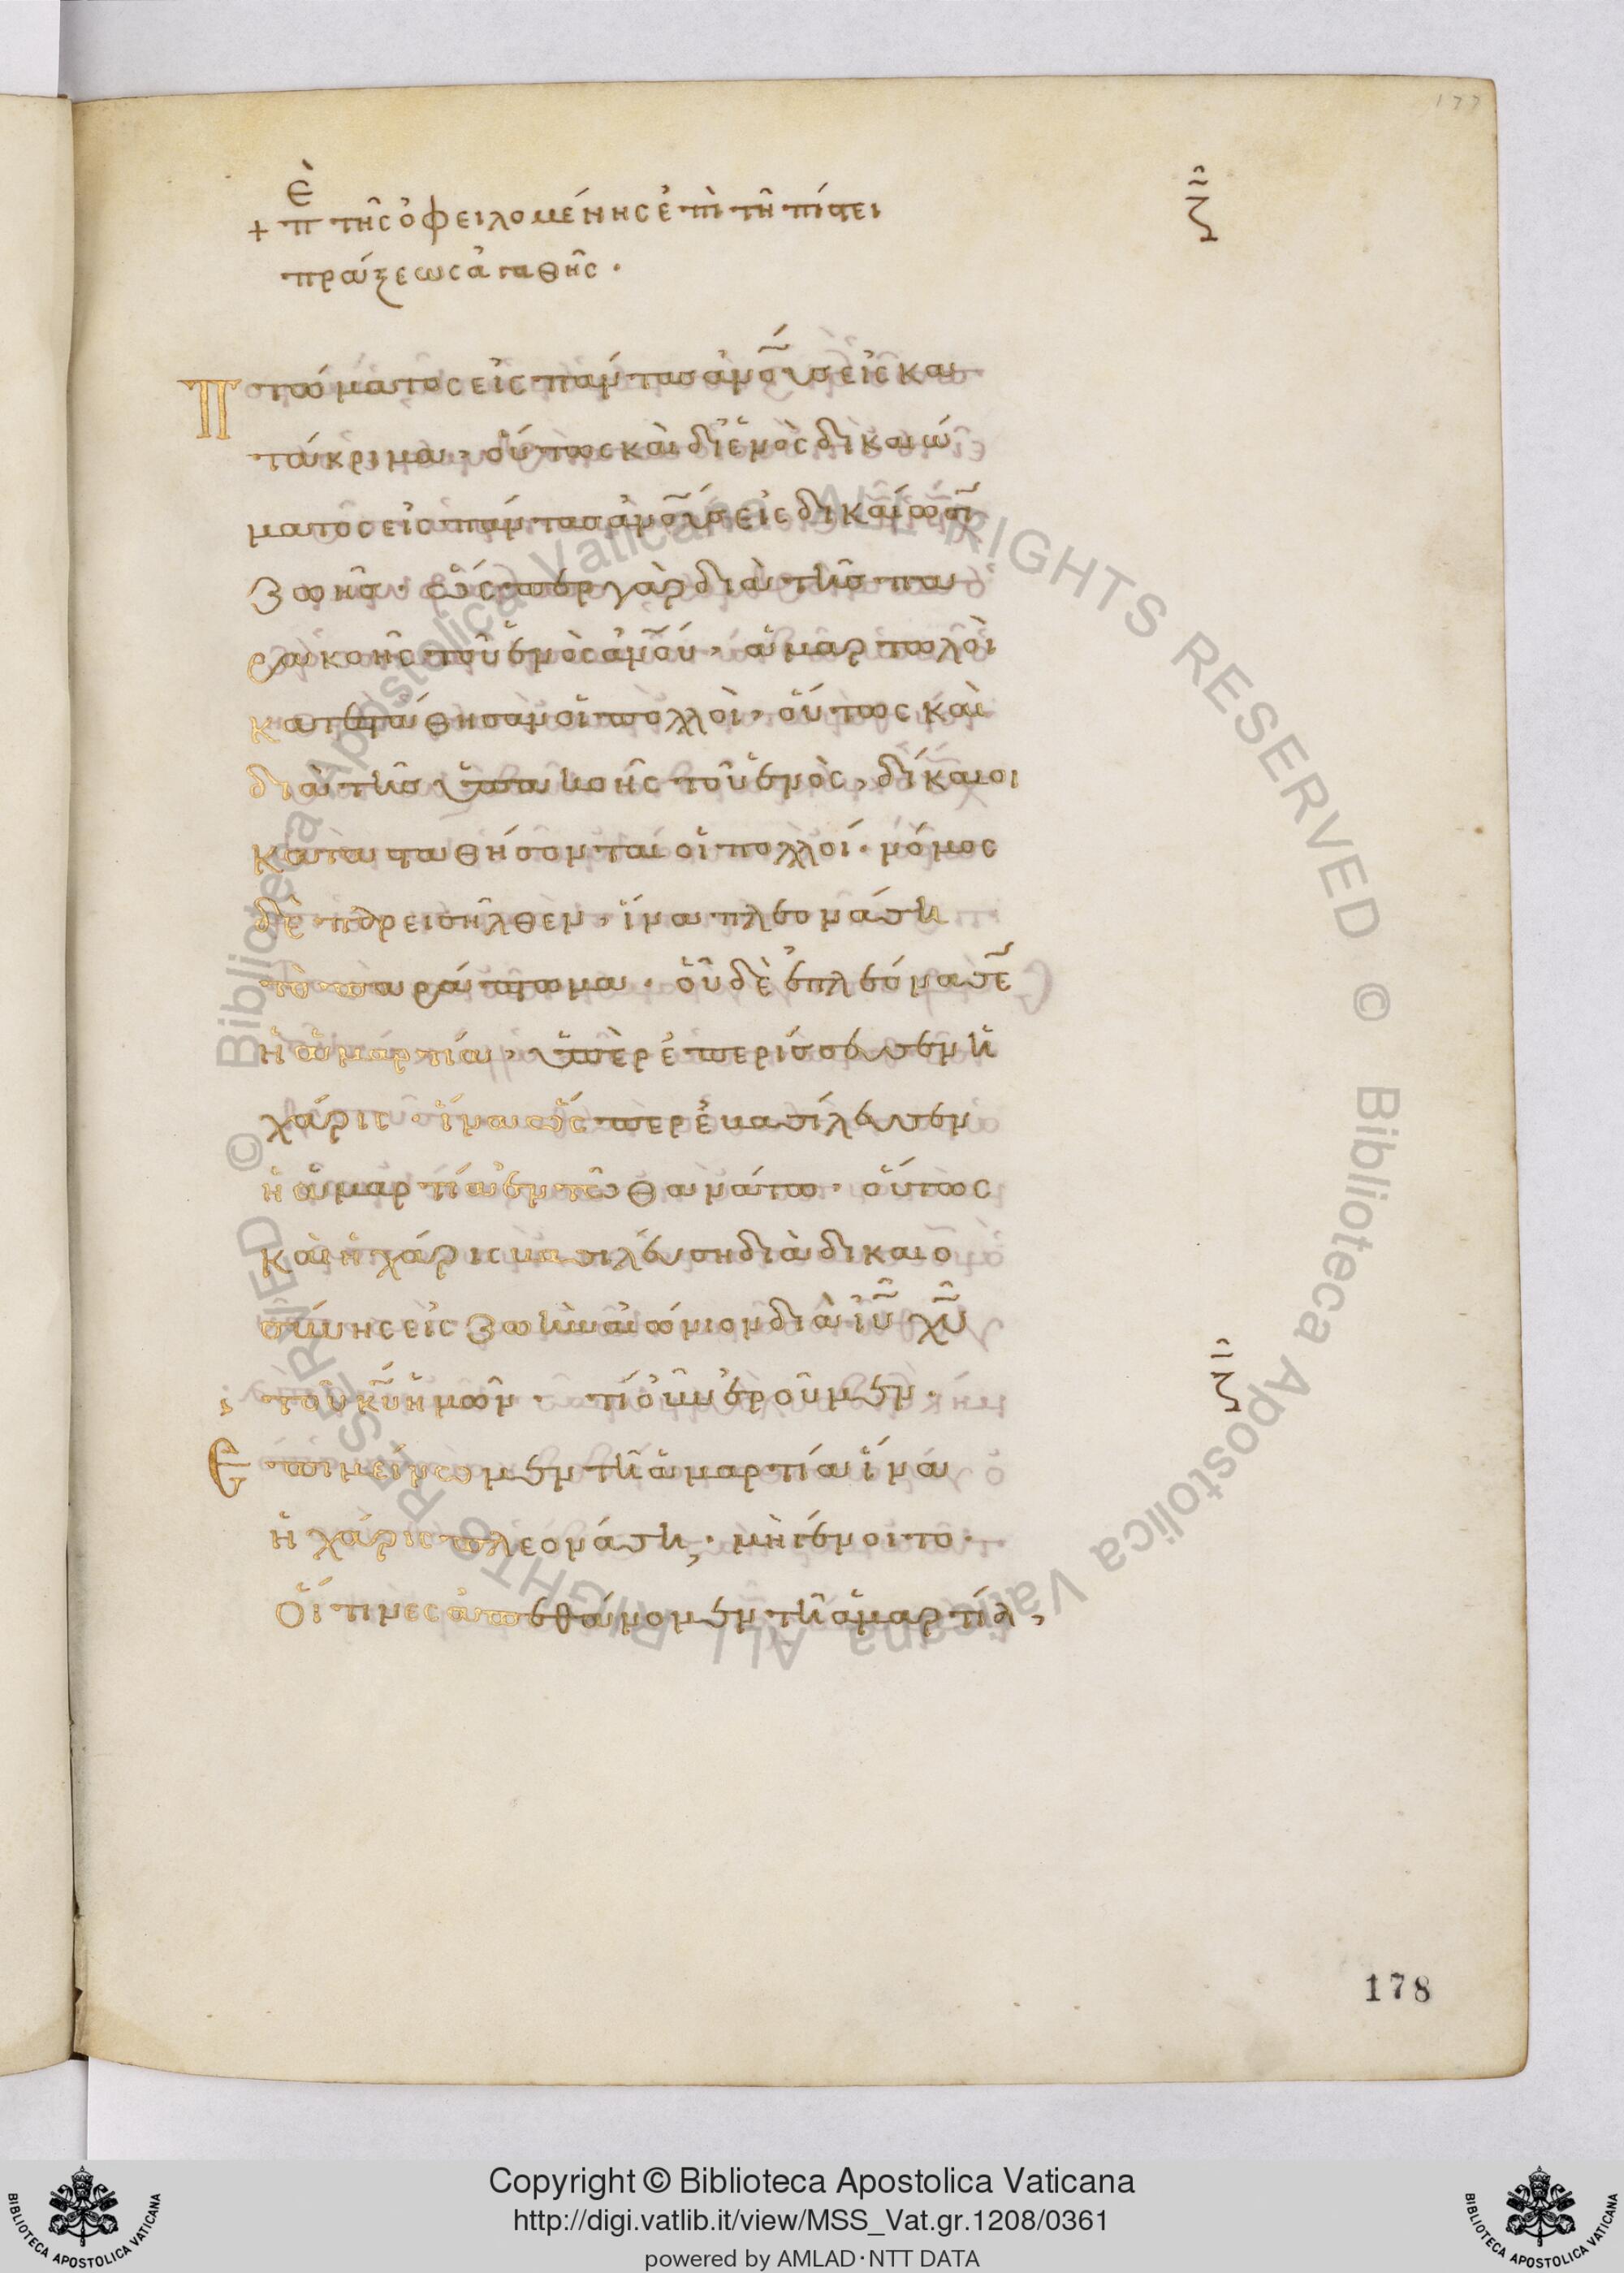 177
ζ
+ πὲ τῆς ὀφειλομένης ἐπὶ τῆ πίστει
πράξεως ἀγαθῆς ·
Πτώματος εἰς πάντας ἀν̅ο̅υ̅ς εἰς κα
τάκριμα · οὕτως καὶ δι ἑνὸς δικαιώ
ματος εἰς πάντας ἀν̅ο̅υ̅ς εἰς δικαίωσῑ
ζωῆς · ὥσπερ γὰρ διὰ τῆς πα
ρακοῆς τοῦ ἑνὸς ἀν̅ο̅υ̅, ἁμαρτωλοὶ
κατεστάθησαν οἱ πολλοὶ, οὕτως καὶ
διὰ τῆς ὑπακοῆς τοῦ ἑνὸς, δίκαιοι
κατασταθήσονται οἱ πολλοί · νόμος
δὲ παρεισῆλθεν, ἵνα πλεονάση
τὸ παράπτωμα · οὗ δὲ ἐπλεόνασε̄
ἡ ἁμαρτία, ὑπερεπερίσσευσεν ἡ
χάρις · ἵνα ὥσπερ ἐβασίλευσεν
ἡ ἁμαρτία ἐν τῶ θανάτω · οὕτως
καὶ ἡ χάρις βασιλεύση διὰ δικαιο
σύνης εἰς ζωὴν αἰώνιον διὰ ι̅υ̅ χ̅υ̅
τοῦ κ̅υ̅ ἡμῶν · τί οὖν ἐροῦμεν ·
ζ
Ἐπιμείνωμεν τῆ ἁμαρτία ἵνα
ἡ χάρις πλεονάση; · μὴ γένοιτο ·
Οἵτινες ἀπεθάνομεν τῆ ἁμαρτία,
178
© Biblioteca Apostolica Vaticana ALL RIGHTS RESERVED © Biblioteca Apostolica Vaticana ALL RIGHTS RESERVED
Copyright © Biblioteca Apostolica Vaticana
http://digi.vatlib.it/view/MSS_Vat.gr.1208/0361
powered by AMLAD·NTT DATA
BIBLIOTECA APOSTOLICA VATICANA
BIBLIOTECA APOSTOLICA VATICANA